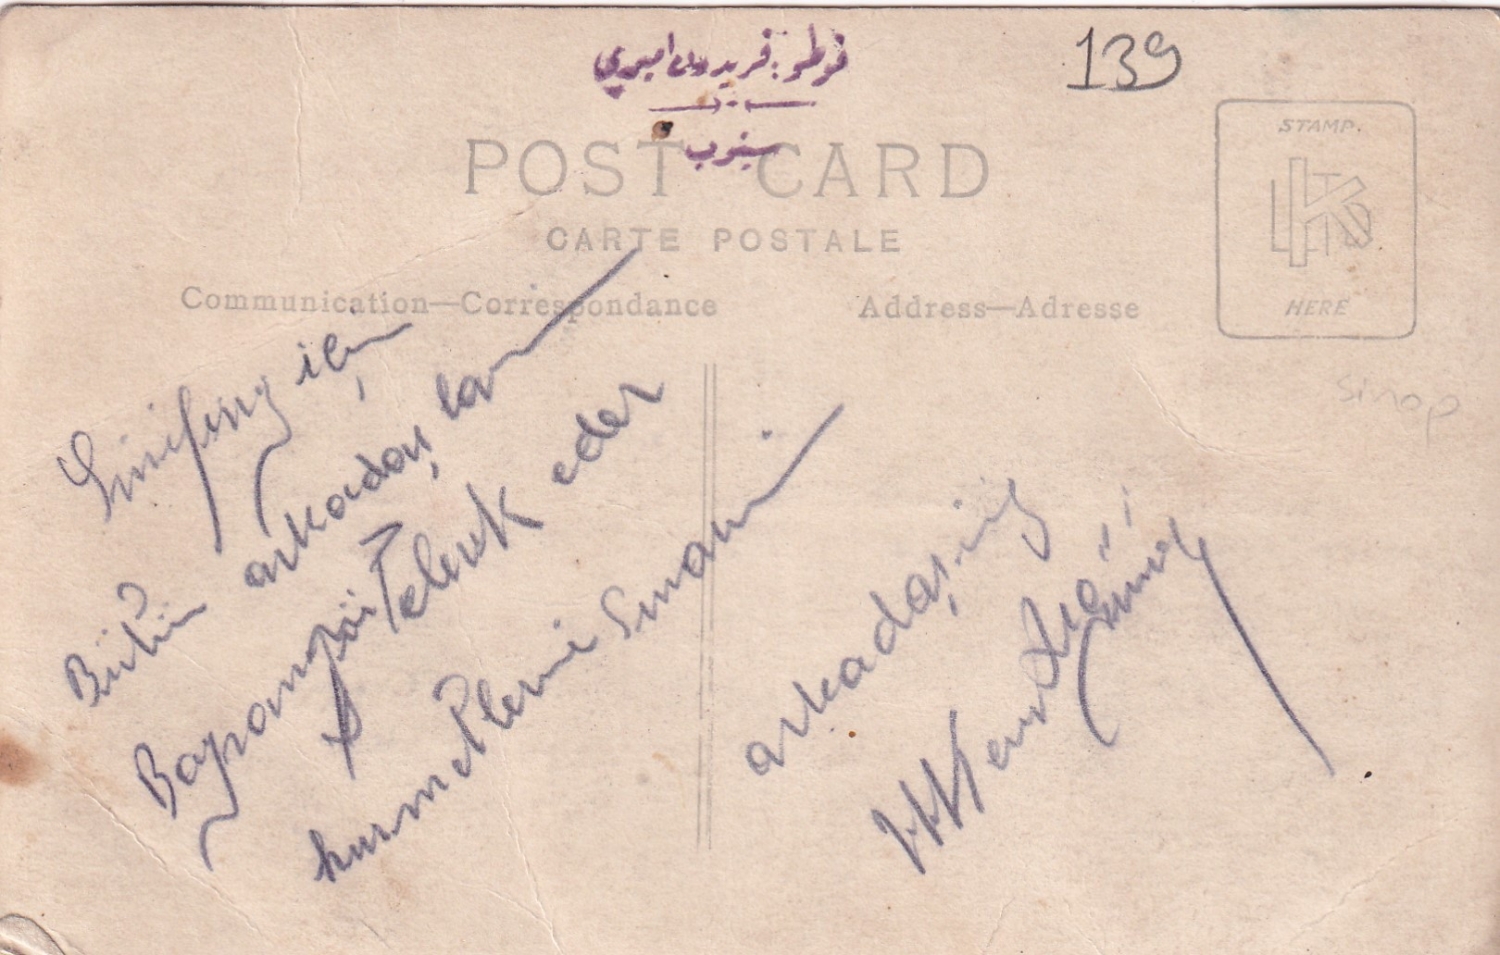 فوطو: فريدون اميري
139
سينوب
POST CARD
CARTE POSTALE
Communication—Correspondance
Address—Adresse
STAMP.
HERE
sinop
için
Bütün arkadaşların
Bayramını Tebrik eder
hürmetlerimi Sunarım
arkadaşınız